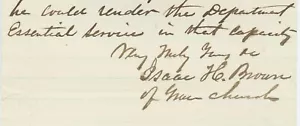 he could render the Department
Essential Service in that Capacity
Very Truly Yours &c
Isaac H. Brown
of Grace Church